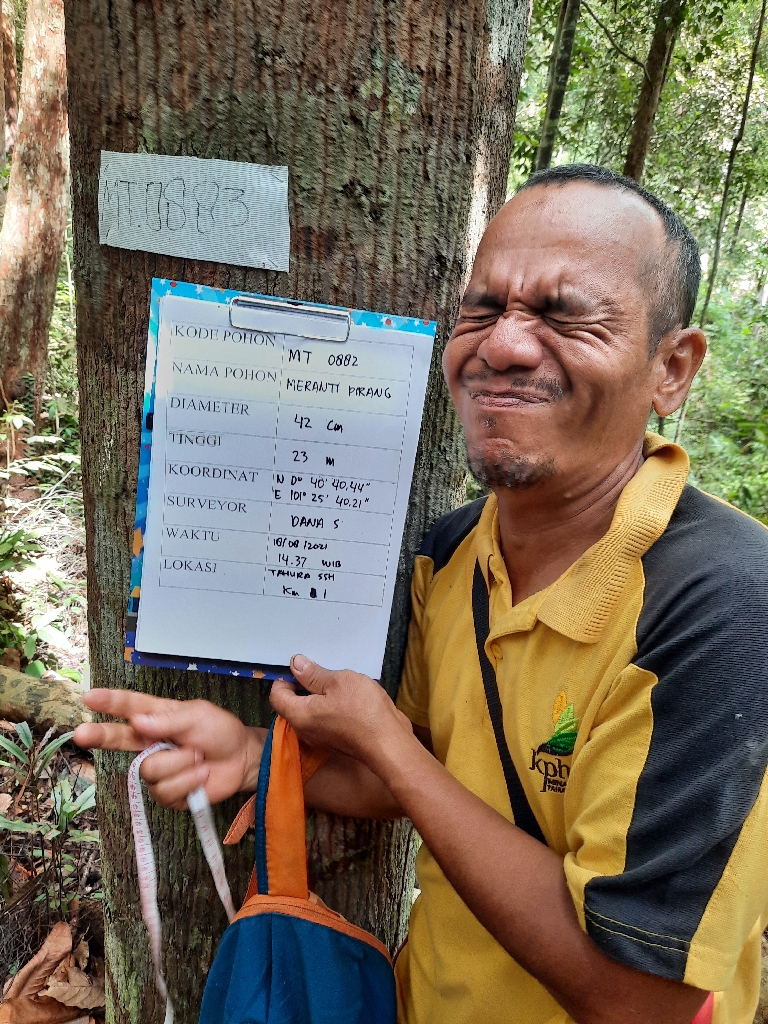 MT.0883
KODE POHON MT 0882
NAMA POHON MERANTI PIRANG
DIAMETER 42 Cm
TINGGI 23 m
KOORDINAT N 0° 40' 40,44"
E 101° 25' 40.21"
SURVEYOR DANA S
WAKTU 18/08/2021
14.37 WIB
LOKASI TAHURA SSH
Km 1
kph